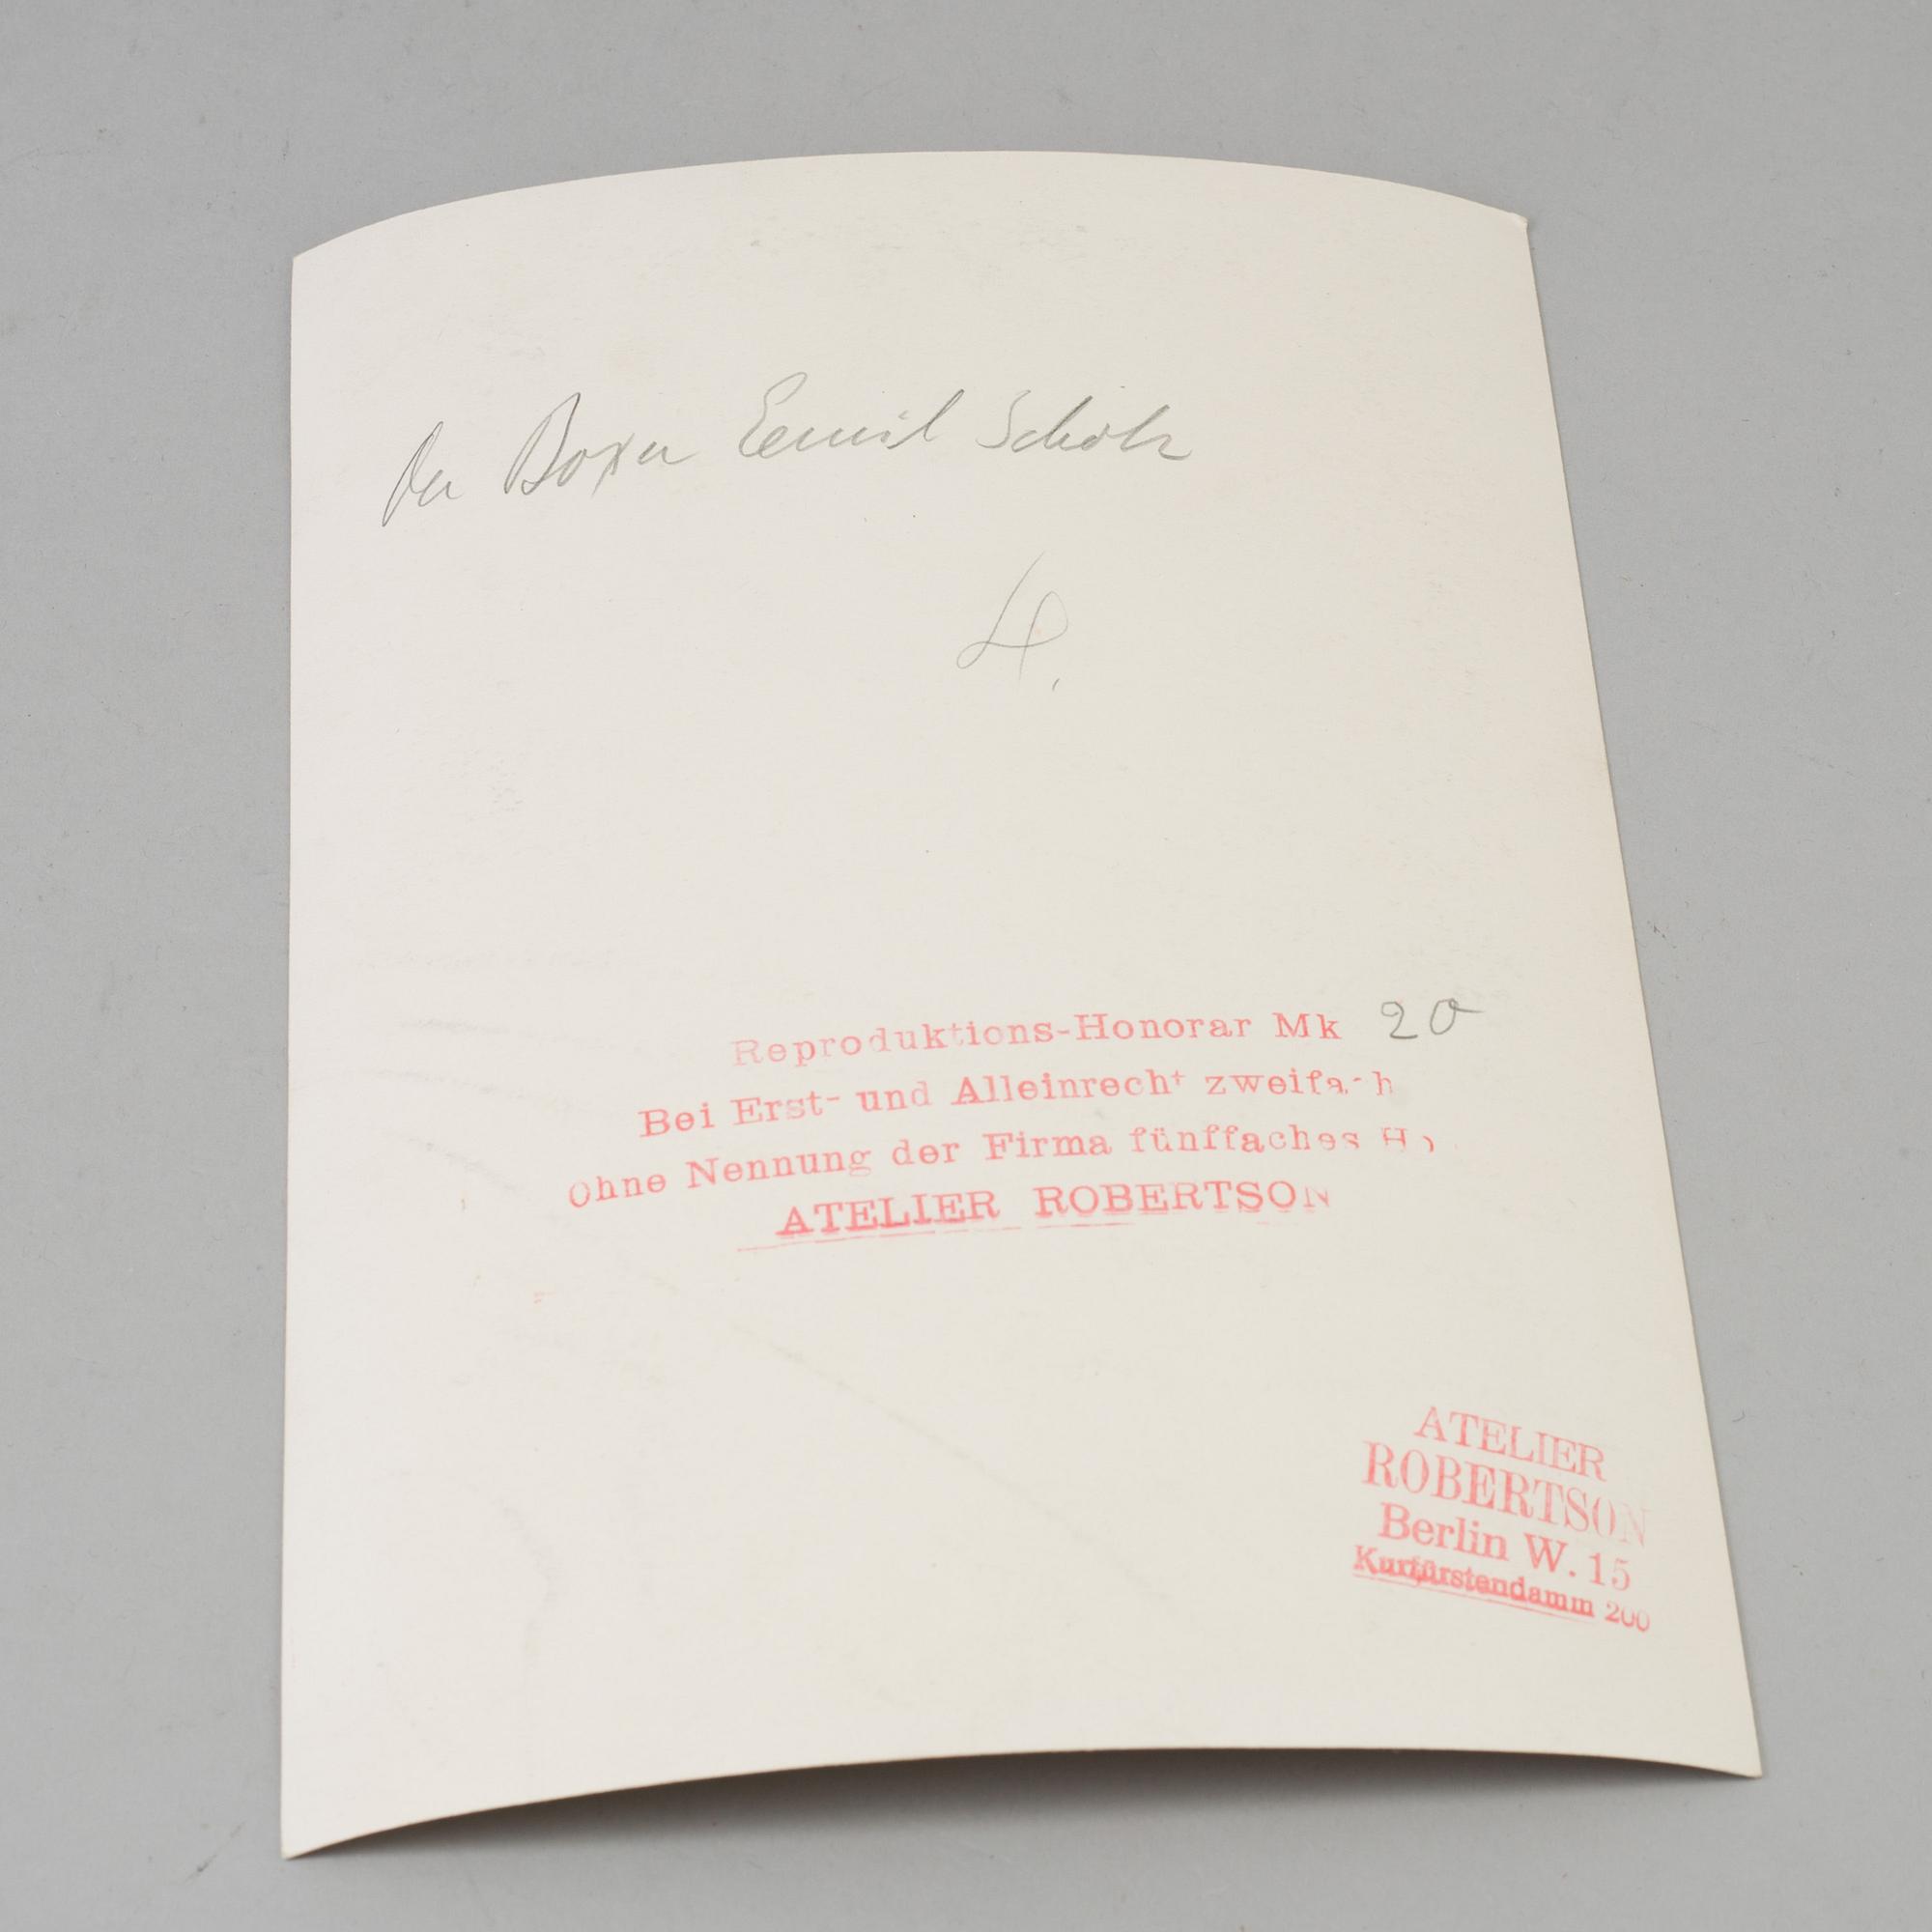 Der Boxer Emil Scholz
4.
Reproduktions-Honorar Mk 20
Bei Erst- und Alleinrecht zweifach
Ohne Nennung der Firma fünffaches
ATELIER ROBERTSON
ATELIER
ROBERTSON
Berlin W. 15
Kurfürstendamm 200